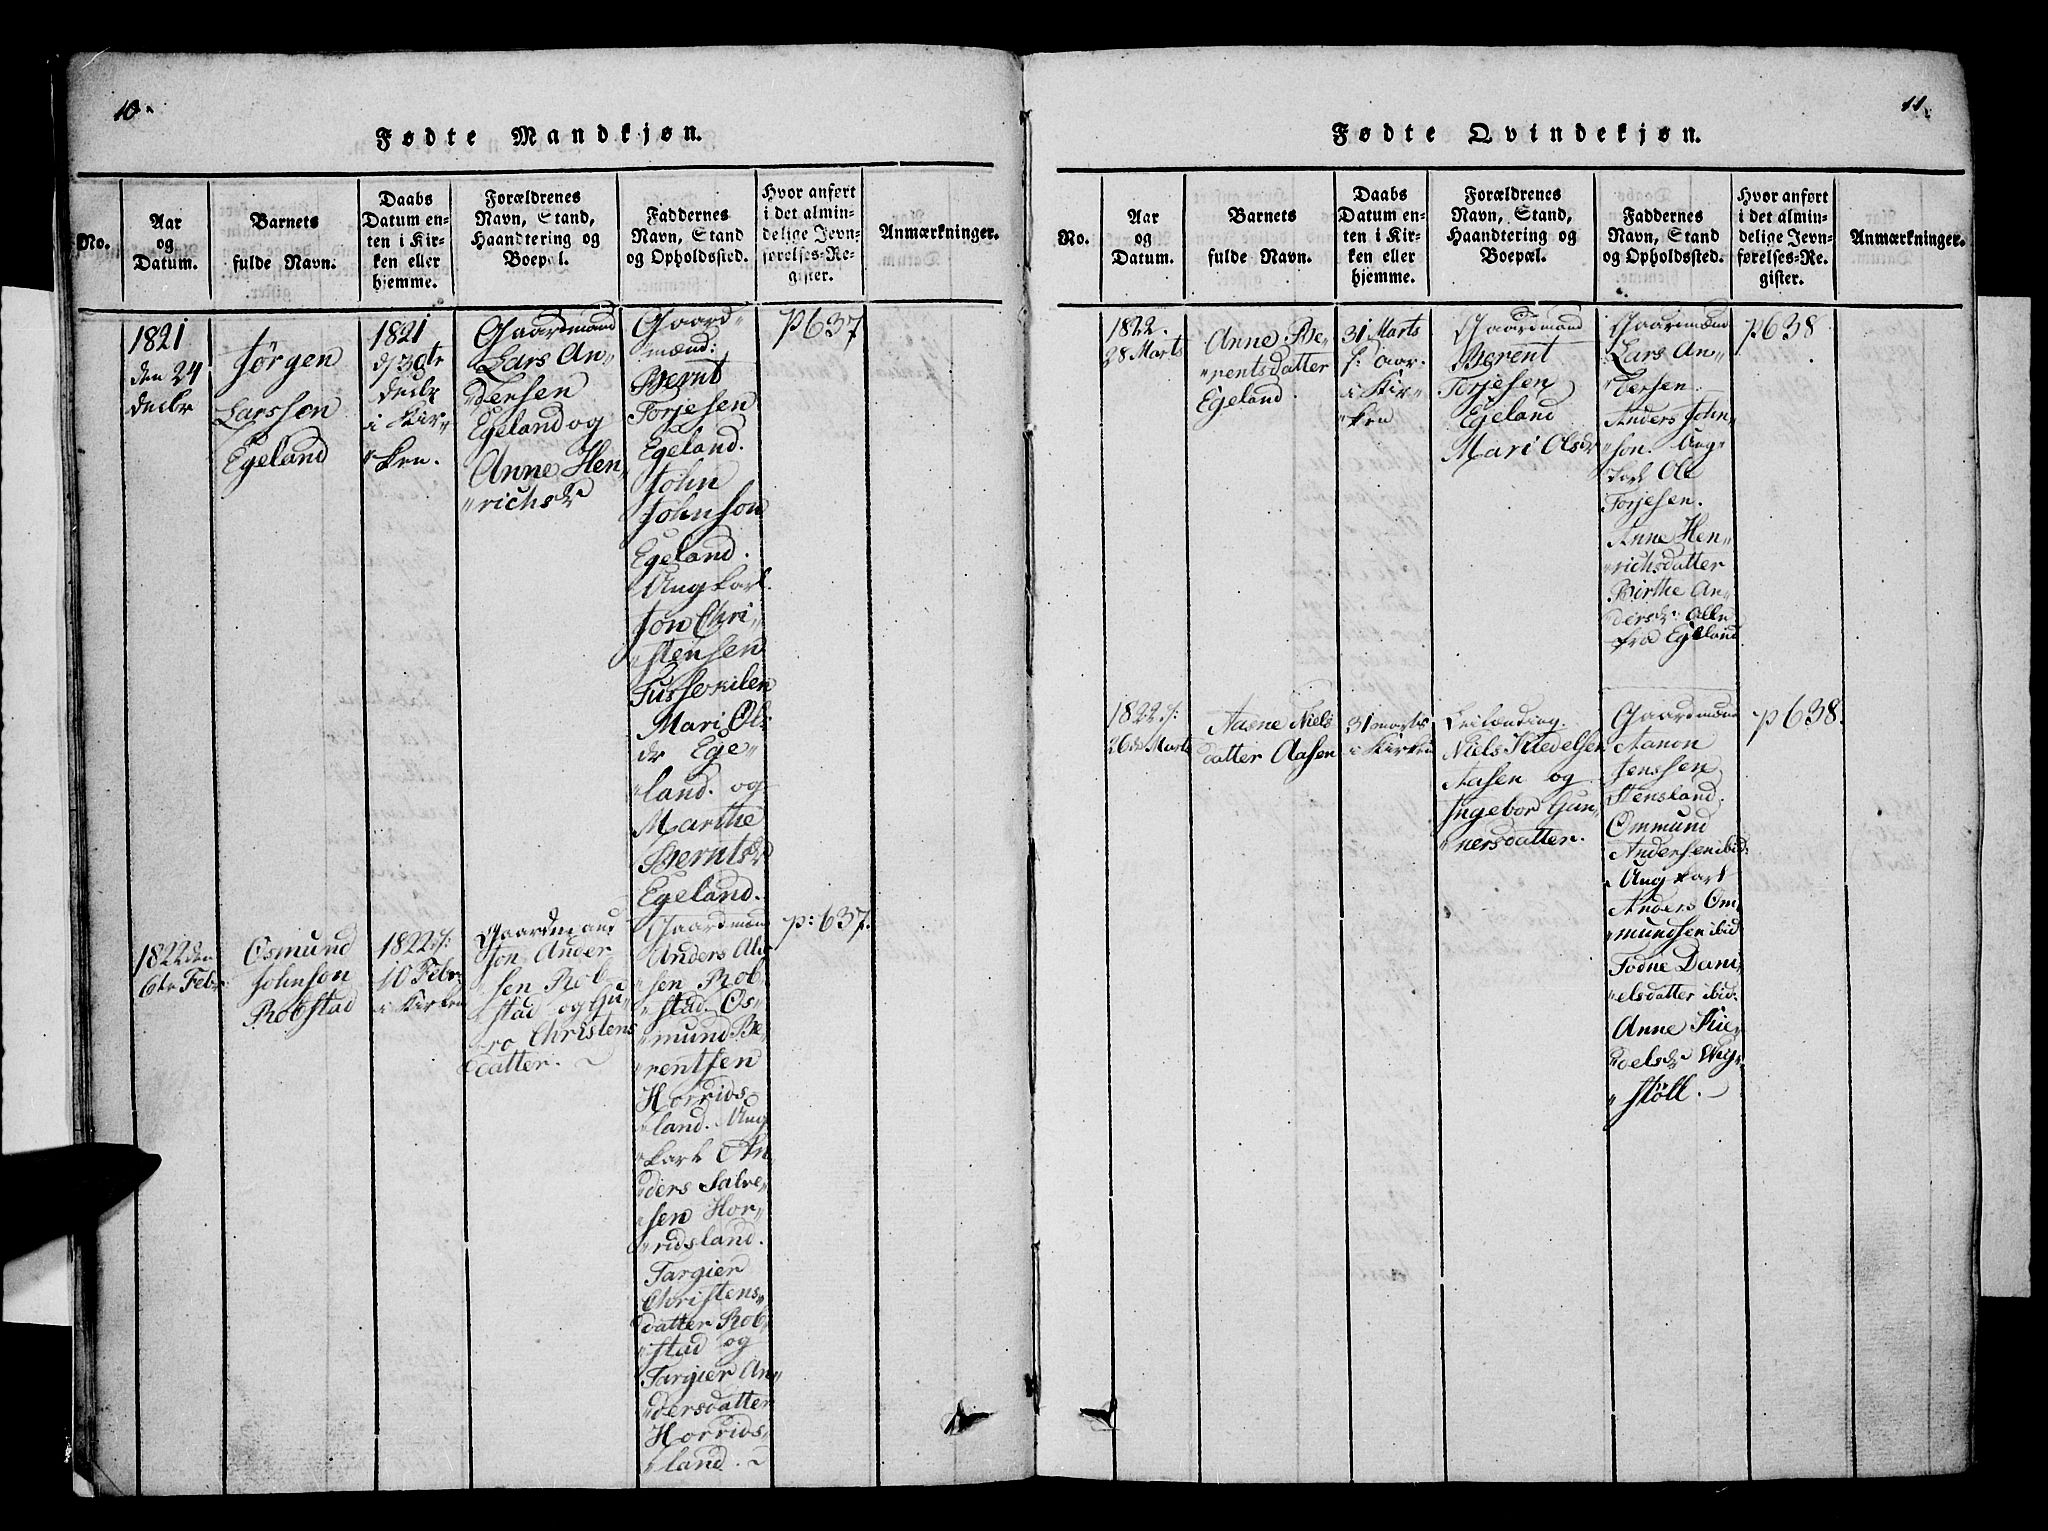 10.
Fødte Mandkjøn.
No.
Aar
og
Datum.
Barnets
fulde Navn.
Daabs
Datum en-
ten i Kir-
ken eller
hjemme.
Forældrenes
Navn, Stand,
Haandtering og
Boepæl.
Faddernes
Navn, Stand
og Opholdssted.
Hvor anført
i det almin-
delige Jevn-
førelses-Re-
gister.
Anmærkninger.
1821
den 24
Decbr
Jørgen
Larsson
Egeland
1821
d: 30te
Decbr
i Kir-
"ken.
Gaardmand
Lars An-
"dersen
Egeland og
Anne Hen-
"richsdr
Gaard-
mænd:
Bernt
Torjesen
Egeland.
John
Johnson
Egeland.
Ungkarl
Jon Chri-
"stensen
Fusserkilen
Mari Ols-
dr Ege-
"land. og
Marthe
Berntsdr
Egeland.
p637
1822 den
6te Febr
Osmund
Johnson
Robstad
1822 s:
10 Febr
i Kirken
Gaardmand
Jon Ander
sen Rob-
stad og Gu-
"ro Christens
datter.
Gaardmænd
Anders An
sen Rob-
"stad. Os-
"mund Be-
"rentsen
Horrids-
"land. Ung
"karl An-
"ders Salve-
"sen Hor-
"ridsland.
Targier
Christens-
datter Rob-
"stad og
Targier An-
"dersdatter
Horrids-
"land.
p: 637.
11.
Fødte Qvindekjøn.
No.
Aar
og
Datum.
Barnets
fulde Navn.
Daabs
Datum en-
ten i Kir-
ken eller
hjemme.
Forældrenes
Navn, Stand,
Haandtering og
Boepæl.
Faddernes
Navn, Stand
og Opholdssted.
Hvor anført
i det almin-
delige Jevn-
førelses-Re-
gister.
Anmærkninger.
1822.
28 Marts
Anne Be-
"rentsdatter
Egeland.
31 Marts
s: Aar.
i Kir-
"ken
Gaardmand
Berent
Torjesen
Egeland
Mari Olsdr
Gaardmænd
Lars An-
"dersen.
Anders John-
"son. Ung-
karl Ole
Torjesen.
Anne Hen-
"richsdatter
Birthe An-
dersdr. Alle
fra Egeland
p638
1822 s:
26de Marts
Aasne Niels
datter Aasen
31 marts
i Kirken
Leilænding.
Niels Kiedelsen
Aasen og
Ingebor Gun-
"nersdatter.
Gaardmænd
Aanon
Jenssen
Stensland.
Ommund
Andersen ibid:
Ungkarl
Anders Om-
"mundsen ibid
Todne Dani-
"elsdatter ibid:
Anne Kie-
"delsdr Wig-
"støll.
p638.